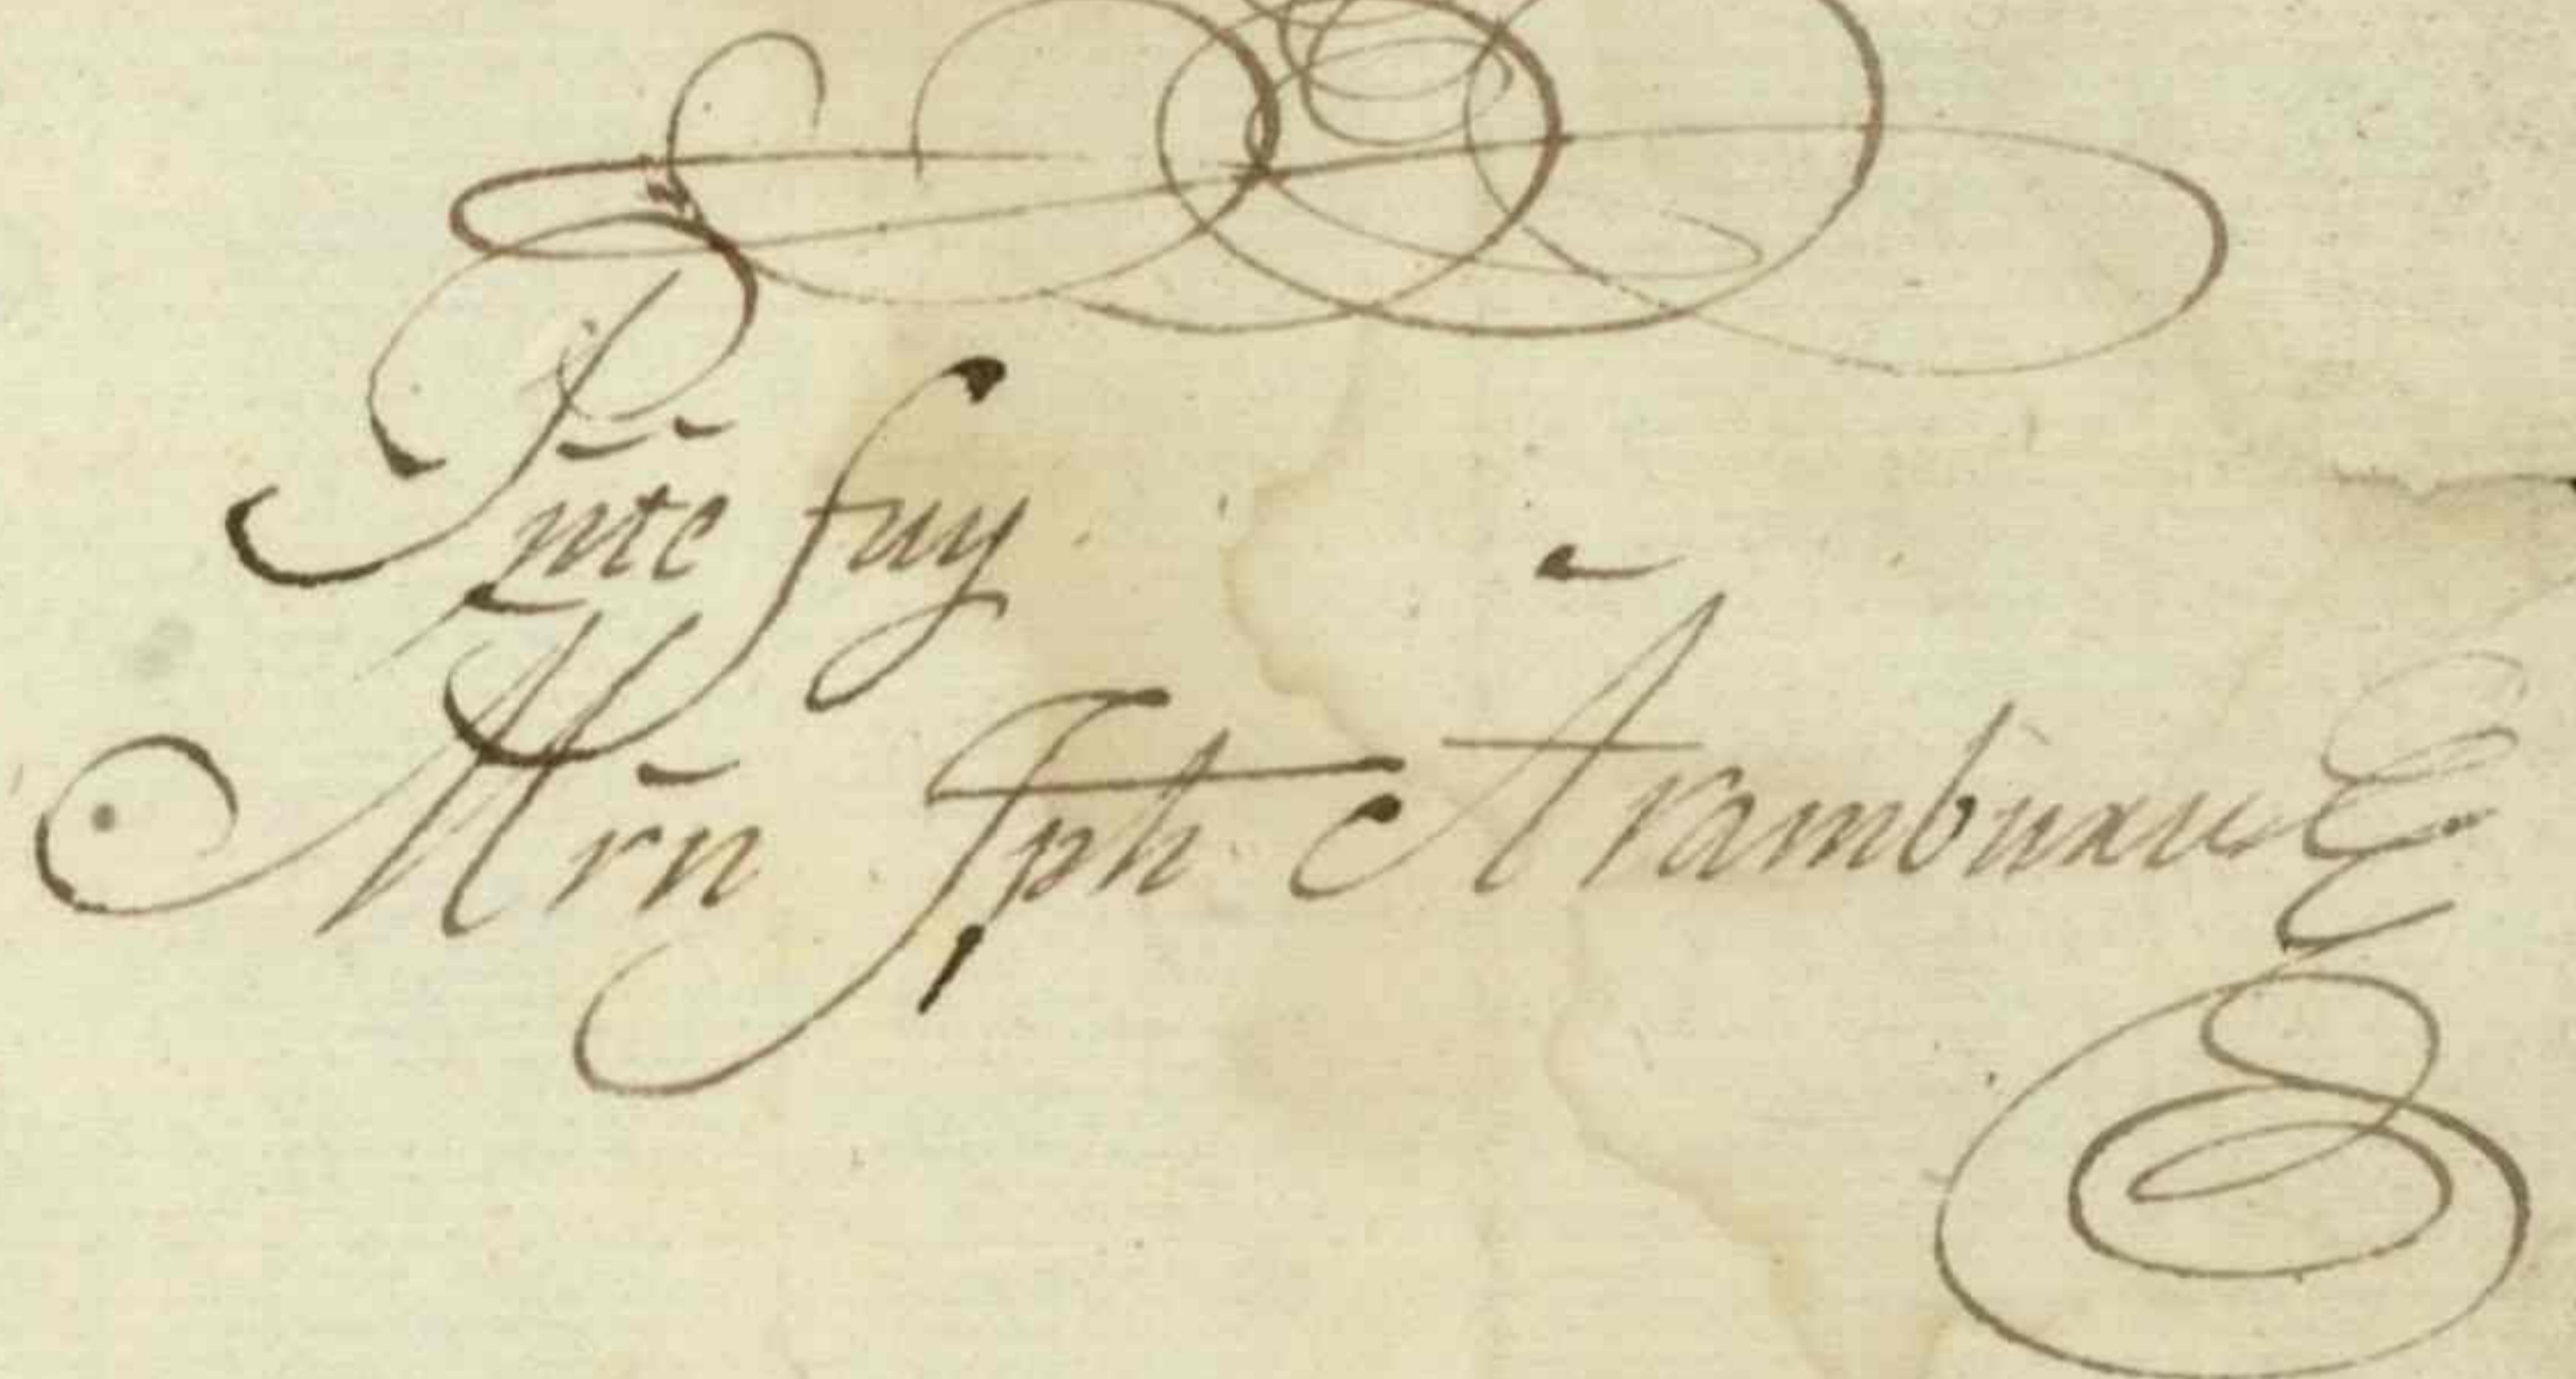 Pñte fuy
Mrñ Jph Arambuxu